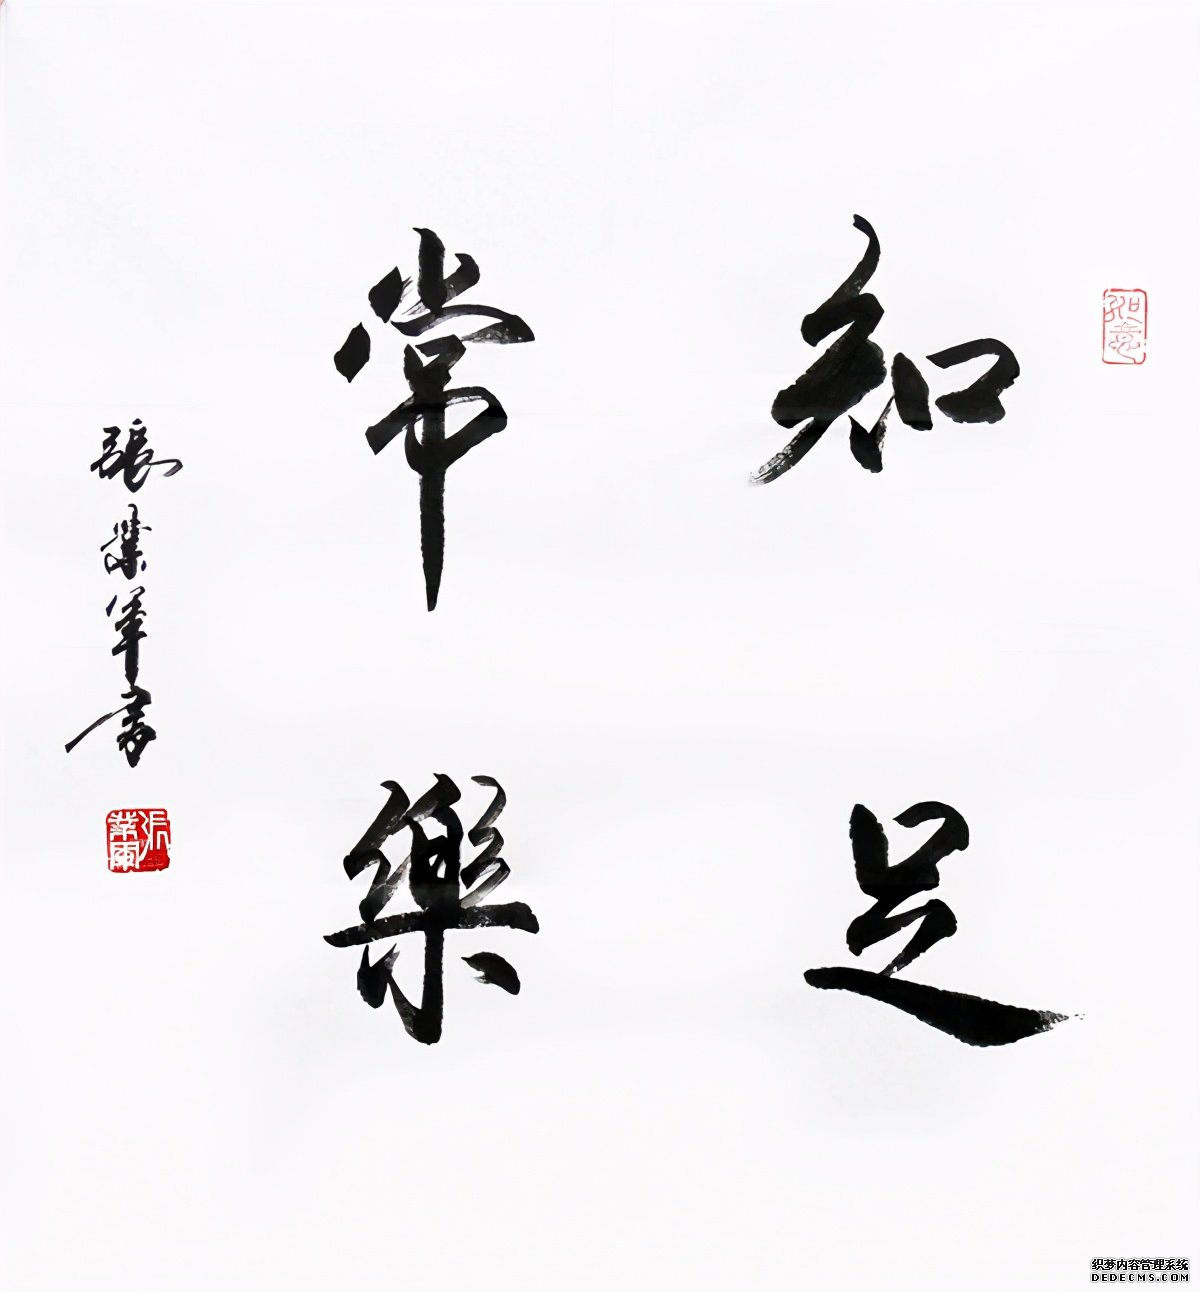 知足
常樂
張業軍書
如意
張業軍
织梦内容管理系统
DEDECMS.COM